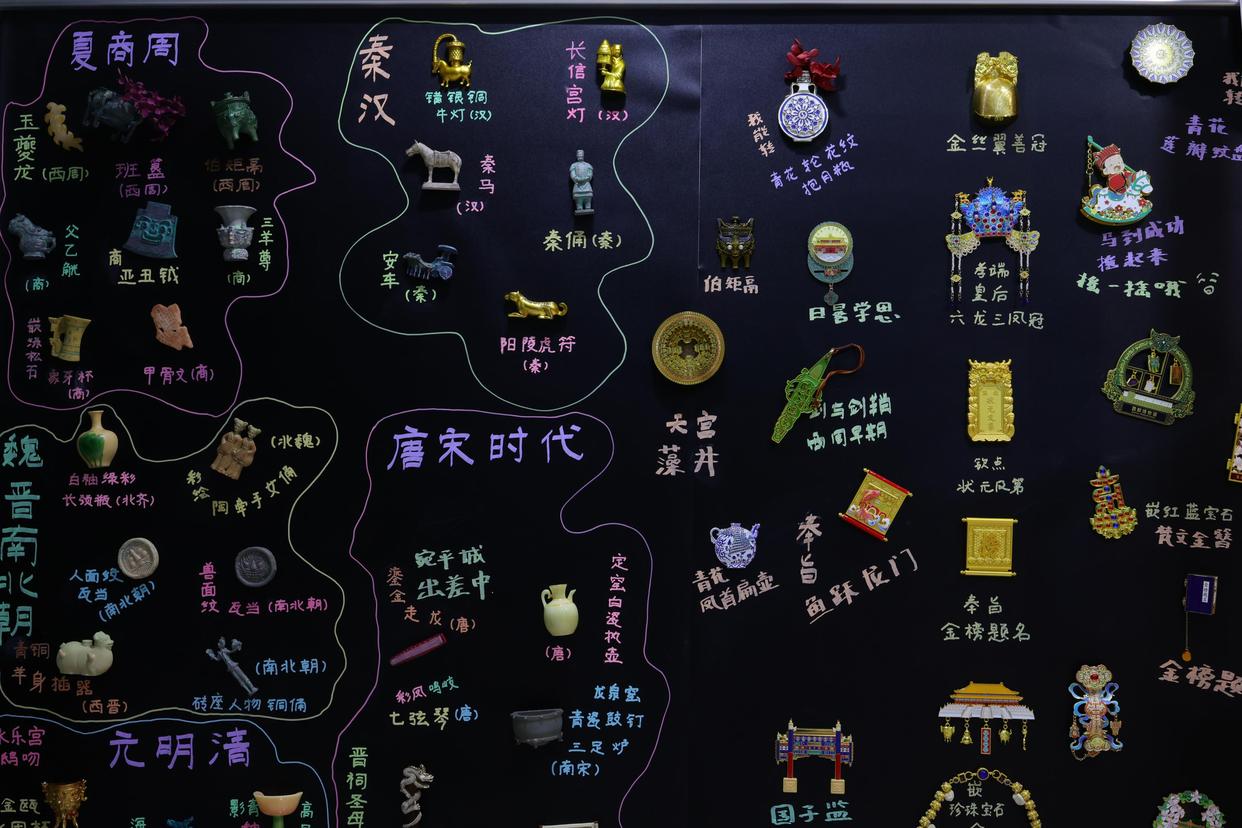 夏商周
玉夔龙
(西周)
班簋
(西周)
伯矩鬲
(西周)
父乙觥
(商)
商
亚丑钺
三羊尊
(商)
嵌绿松石
象牙杯
(商)
甲骨文(商)
秦汉
错银铜
牛灯(汉)
长信宫灯
(汉)
秦马
(汉)
秦俑(秦)
安车
(秦)
阳陵虎符
(秦)
魏晋南北朝
白釉绿彩
长颈瓶(北齐)
(北魏)
彩绘
陶牵手女俑
人面纹
瓦当
(南北朝)
兽面纹
瓦当(南北朝)
青铜
羊身插器
(西晋)
(南北朝)
砖座人物铜俑
唐宋时代
鎏金
走龙(唐)
宛平城
出差中
定窑白瓷执壶
(唐)
彩凤鸣岐
七弦琴(唐)
龙泉窑
青瓷鼓钉
三足炉
(南宋)
晋祠圣母
元明清
永乐宫
鸱吻
金瓯
影青
高
海
我能转
青花轮花纹
抱月瓶
金丝翼善冠
青花
莲瓣纹盘
马到成功
摇起来
摇一摇哦
伯矩鬲
日晷学思
孝端
皇后
六龙三凤冠
天宫
藻井
剑与剑鞘
西周早期
钦点
状元及第
青花
凤首扁壶
奉旨
鱼跃龙门
嵌红蓝宝石
梵文金簪
奉旨
金榜题名
金榜题
国子监
嵌
珍珠宝石